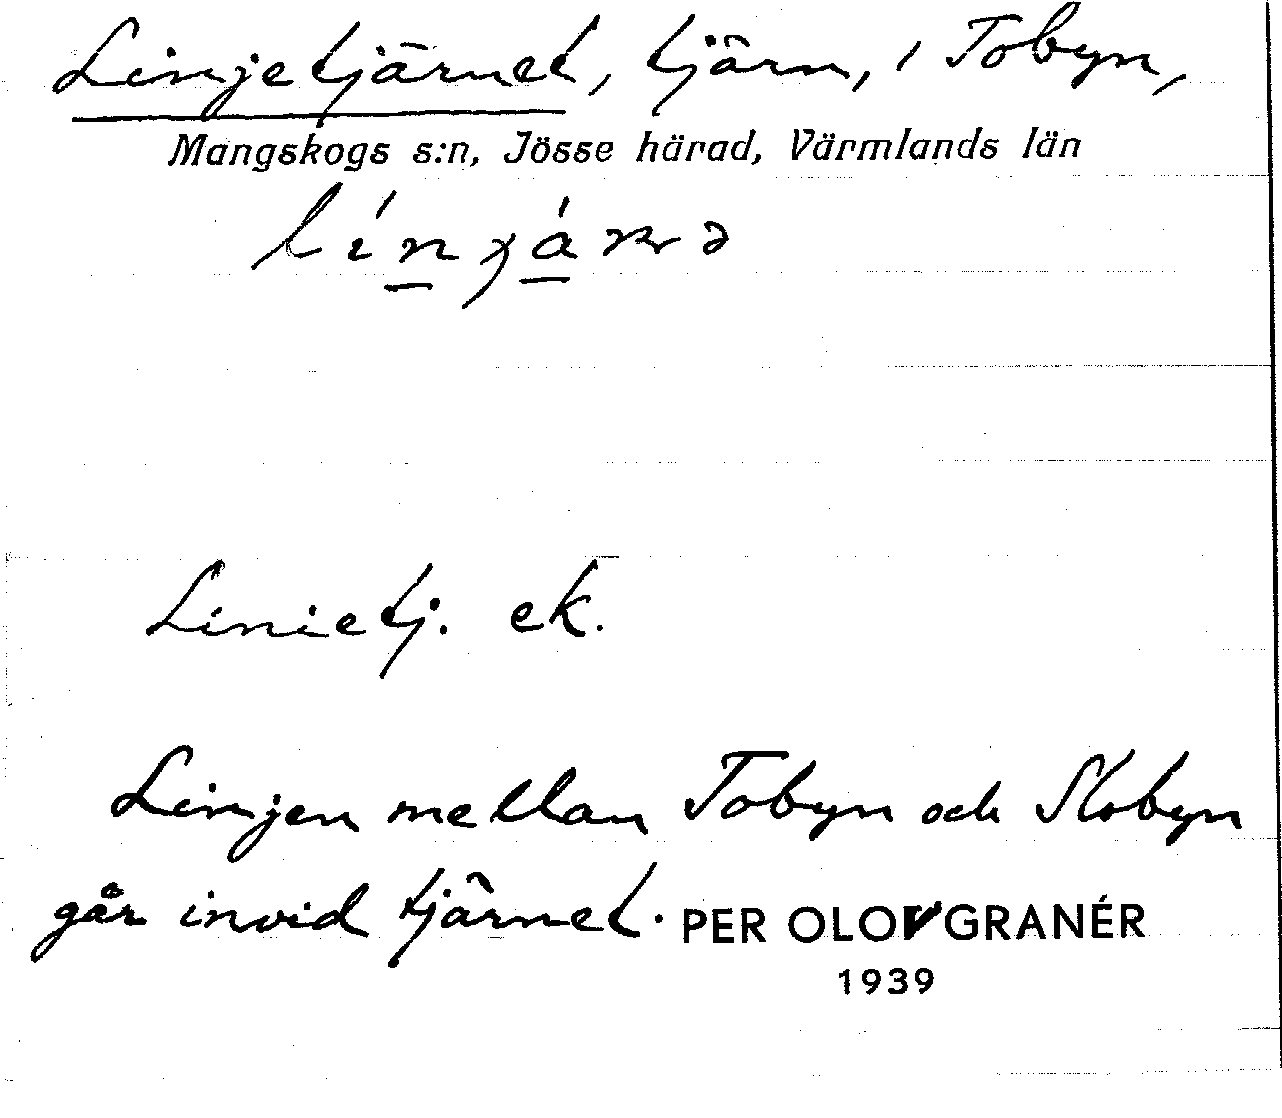 Linjetjärnet, tjärn, i Tobyn,
Mangskogs s:n, Jösse härad, Värmlands län
Linietj. ek.
Linjen mellan Tobyn och Slobyn
går invid tjärnet. PER OLOV GRANÉR
1939